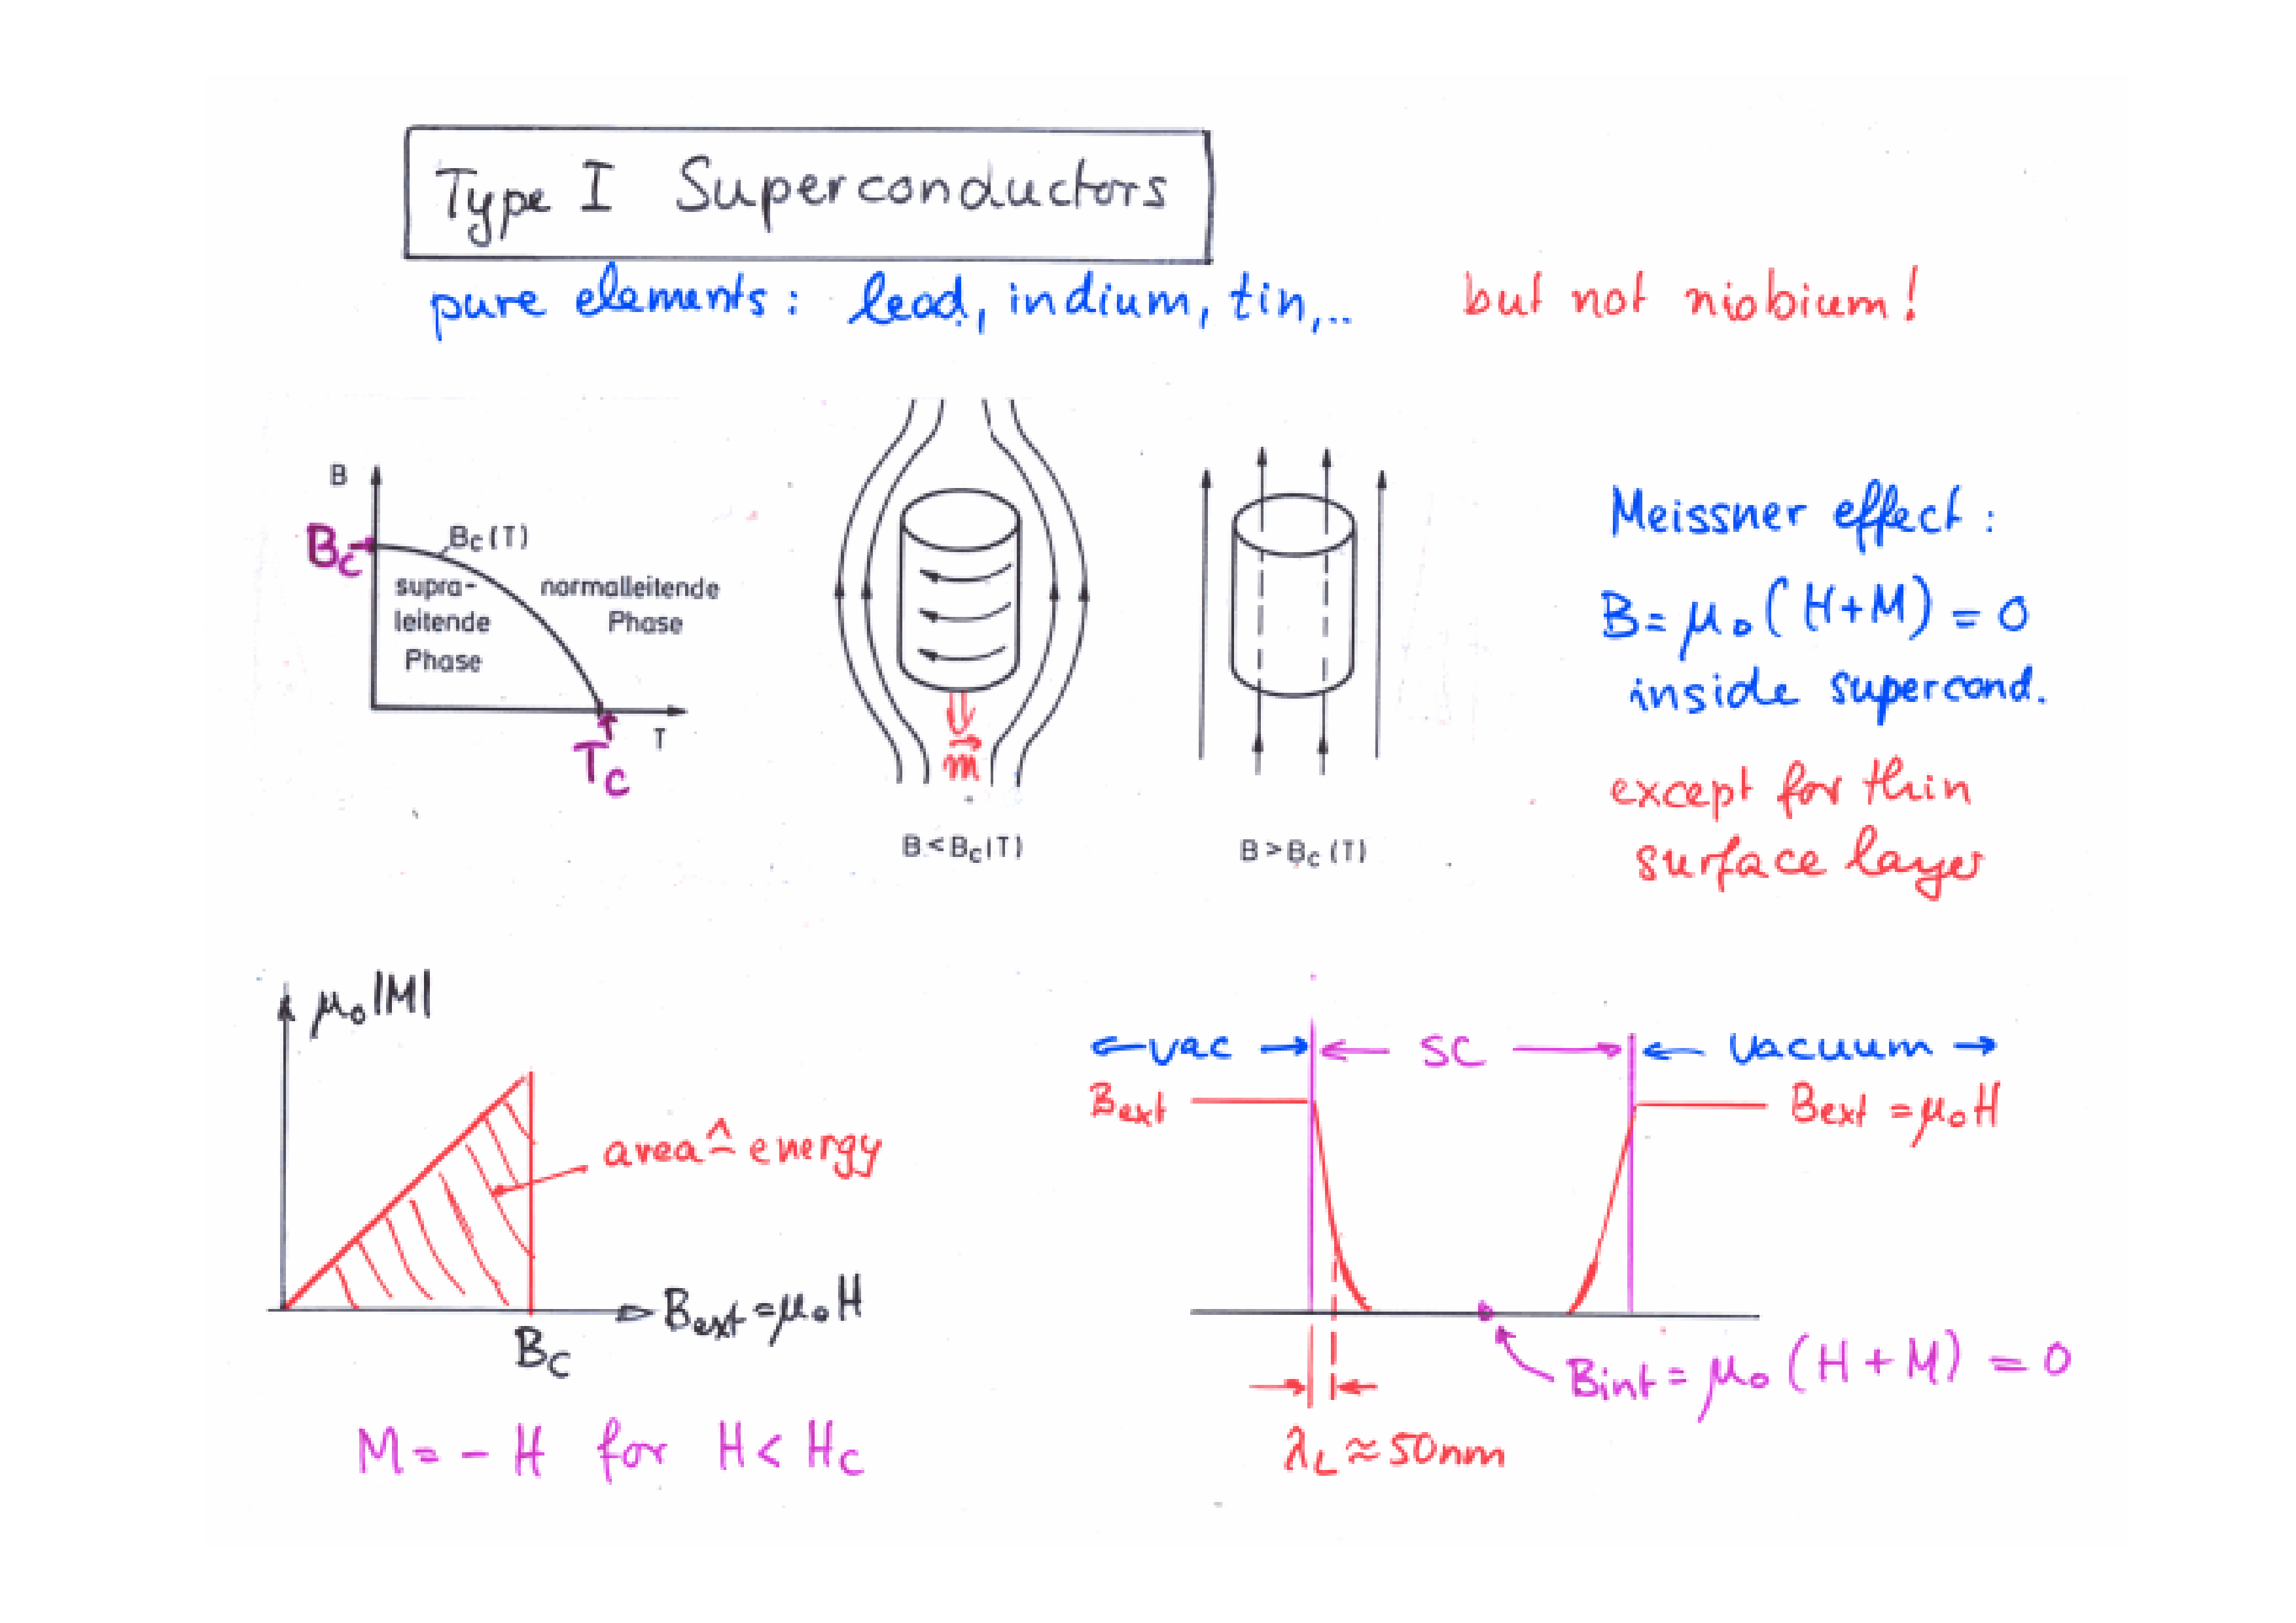 Type I Superconductors
pure elements: lead, indium, tin,.. but not niobium!
B
Bc
Bc(T)
supra-
leitende
Phase
normalleitende
Phase
T
Tc
m
B<Bc(T)
B>Bc(T)
Meissner effect:
B=μ₀(H+M)=0
inside supercond.
except for thin
surface layer
μ₀|M|
area ≙ energy
Bext=μ₀H
Bc
M=-H for H<Hc
←vac→ ←SC→ ←vacuum→
Bext
Bext=μ₀H
Bint=μ₀(H+M)=0
λL≈50nm